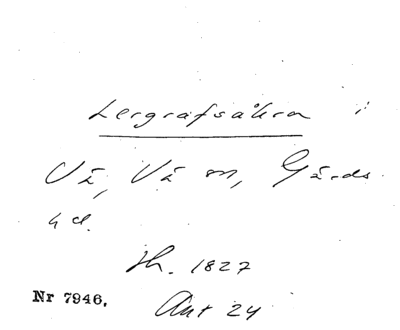 Lergrafsåkra i
Vä, Vä sn, Gärds
hd.
Sk. 1827
Nr 7946.
Ant 24